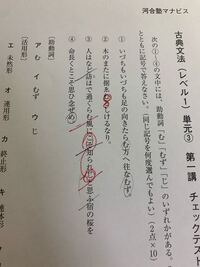 河合塾マナビス
古典文法（レベル1）　単元③　第一講　チェックテスト
次の①～④の文中には、助動詞「む」「むず」「じ」のいずれかがある。
とともに記号で答えなさい。（同じ記号を何度選んでもよい）（2点×10
① いづちもいづちも足の向きたらむ方へ往なむず。
② 木のまたに据ゑ
しけるなり。
③ 人はなど訪はで過ぐらむ風に
知られじと思ふ宿の桜を
④ 命長くとこそ思ひ念ぜめ。
［助動詞］
ア　む　イ　むず　ウ　じ
［活用形］
エ　未然形　オ　連用形　カ　終止形